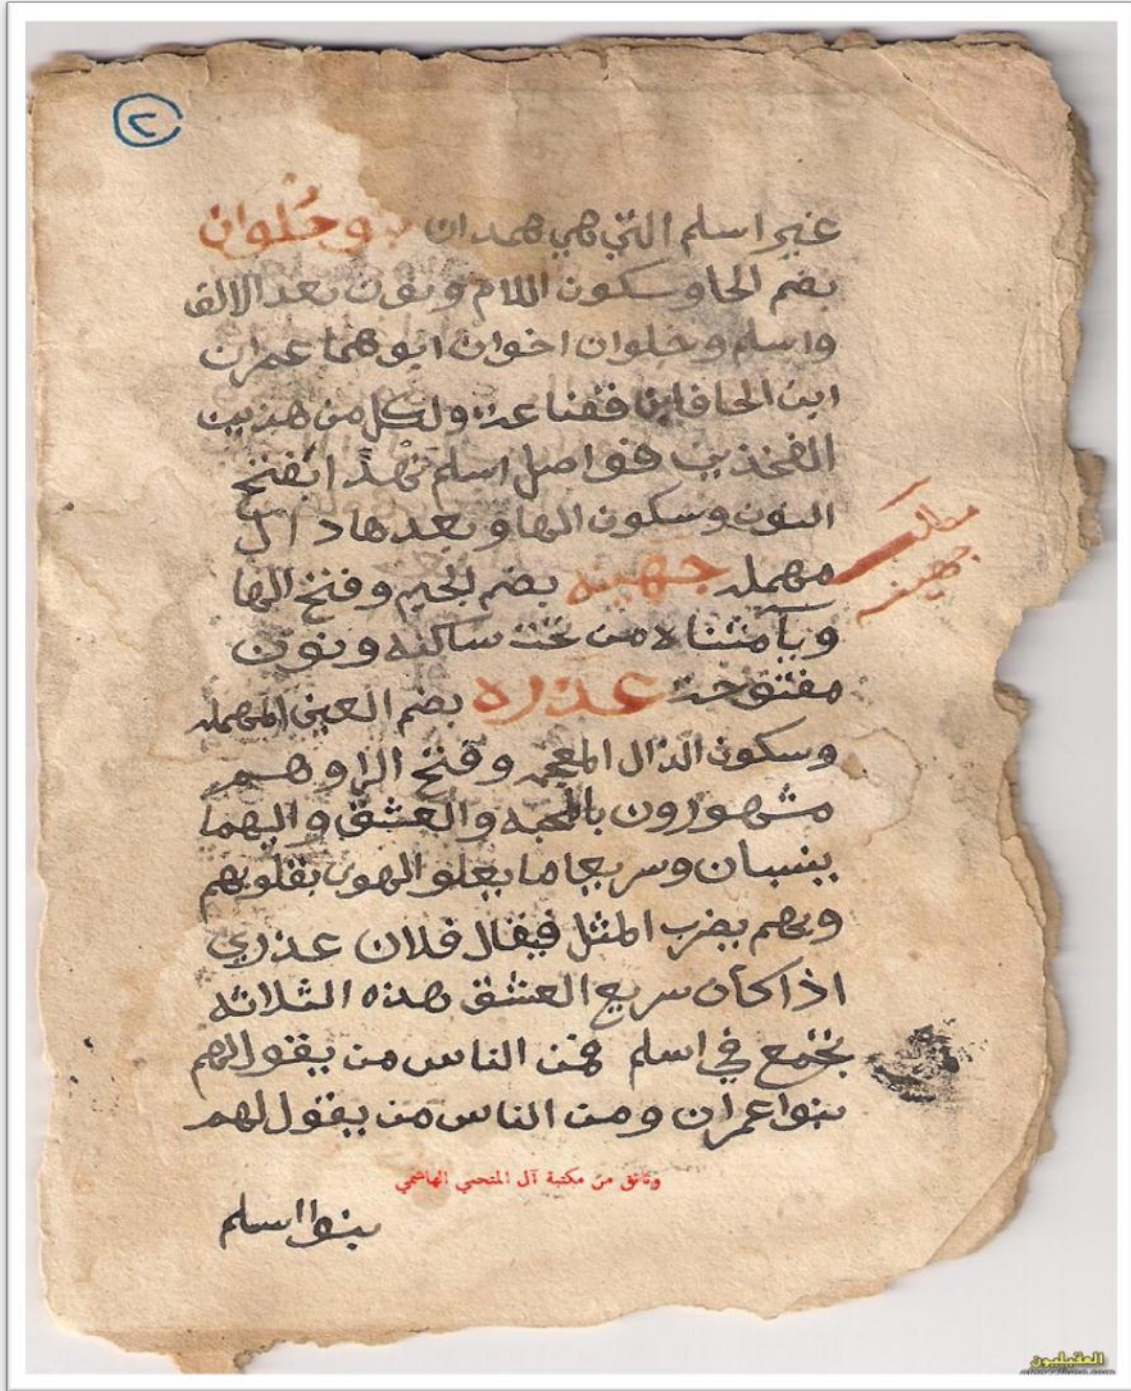 ٢
غير اسلم التي هي همدان وحُلوان
بضم الحا وسكون اللام ونون بعد الالف
واسلم وحلوان اخوان ابوهما عمران
ابن الحاف ابن قضاعة ولكل من هذين
الفخذين فواصل اسلم نهدًا بفتح
النون وسكون الها وبعدها دال
مطلب
جهينه
مهمله جهينه بضم الجيم وفتح الها
ويآ مثناه من تحت ساكنه ونون
مفتوحة عذره بضم العين المهمله
وسكون الذال المعجمه وفتح الرا وهم
مشهورون بالمحبه والعشق واليهما
ينسبان وسريعا ما يعلو الهوى بقلوبهم
وبهم يضرب المثل فيقال فلان عذري
اذا كان سريع العشق هذه الثلاثه
تجتمع في اسلم فمن الناس من يقول لهم
بنوا عمران ومن الناس من يقول لهم
وثائق من مكتبة آل المتحمي الهاشمي
بنوا اسلم
العقيليون